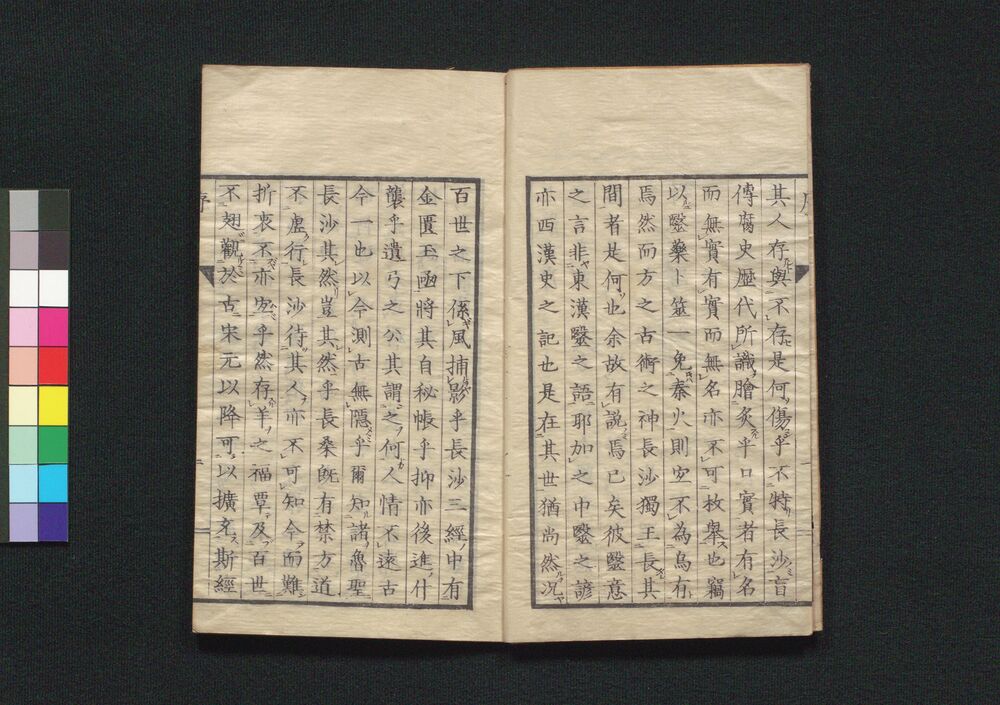 其人存與不存是何傷乎不特長沙盲
傅腐史歴代所識膾炙乎口實者有名
而無實有實而無名亦不可枚舉也竊
以醫藥卜筮一免秦火則宜不為烏有
焉然而方之古術之神長沙獨王長其
間者是何也余故有說焉已矣彼醫意
之言非東漢醫之語耶加之巾醫之諺
亦西漢史之記也是在其世猶尚然况
百世之下係風捕影乎長沙三經中有
金匱玉函將其自秘帳乎抑亦後進什
襲乎遺弓之公其謂之何人情不遠古
今一也以今測古無隱乎爾知諸魯聖
長沙其然豈其然乎長桑既有禁方道
不虛行長沙待其人亦不可知今而難
折衷不亦宜乎然存羊之福覃及百世
不翅觀於古宋元以降可以擴充斯經
序